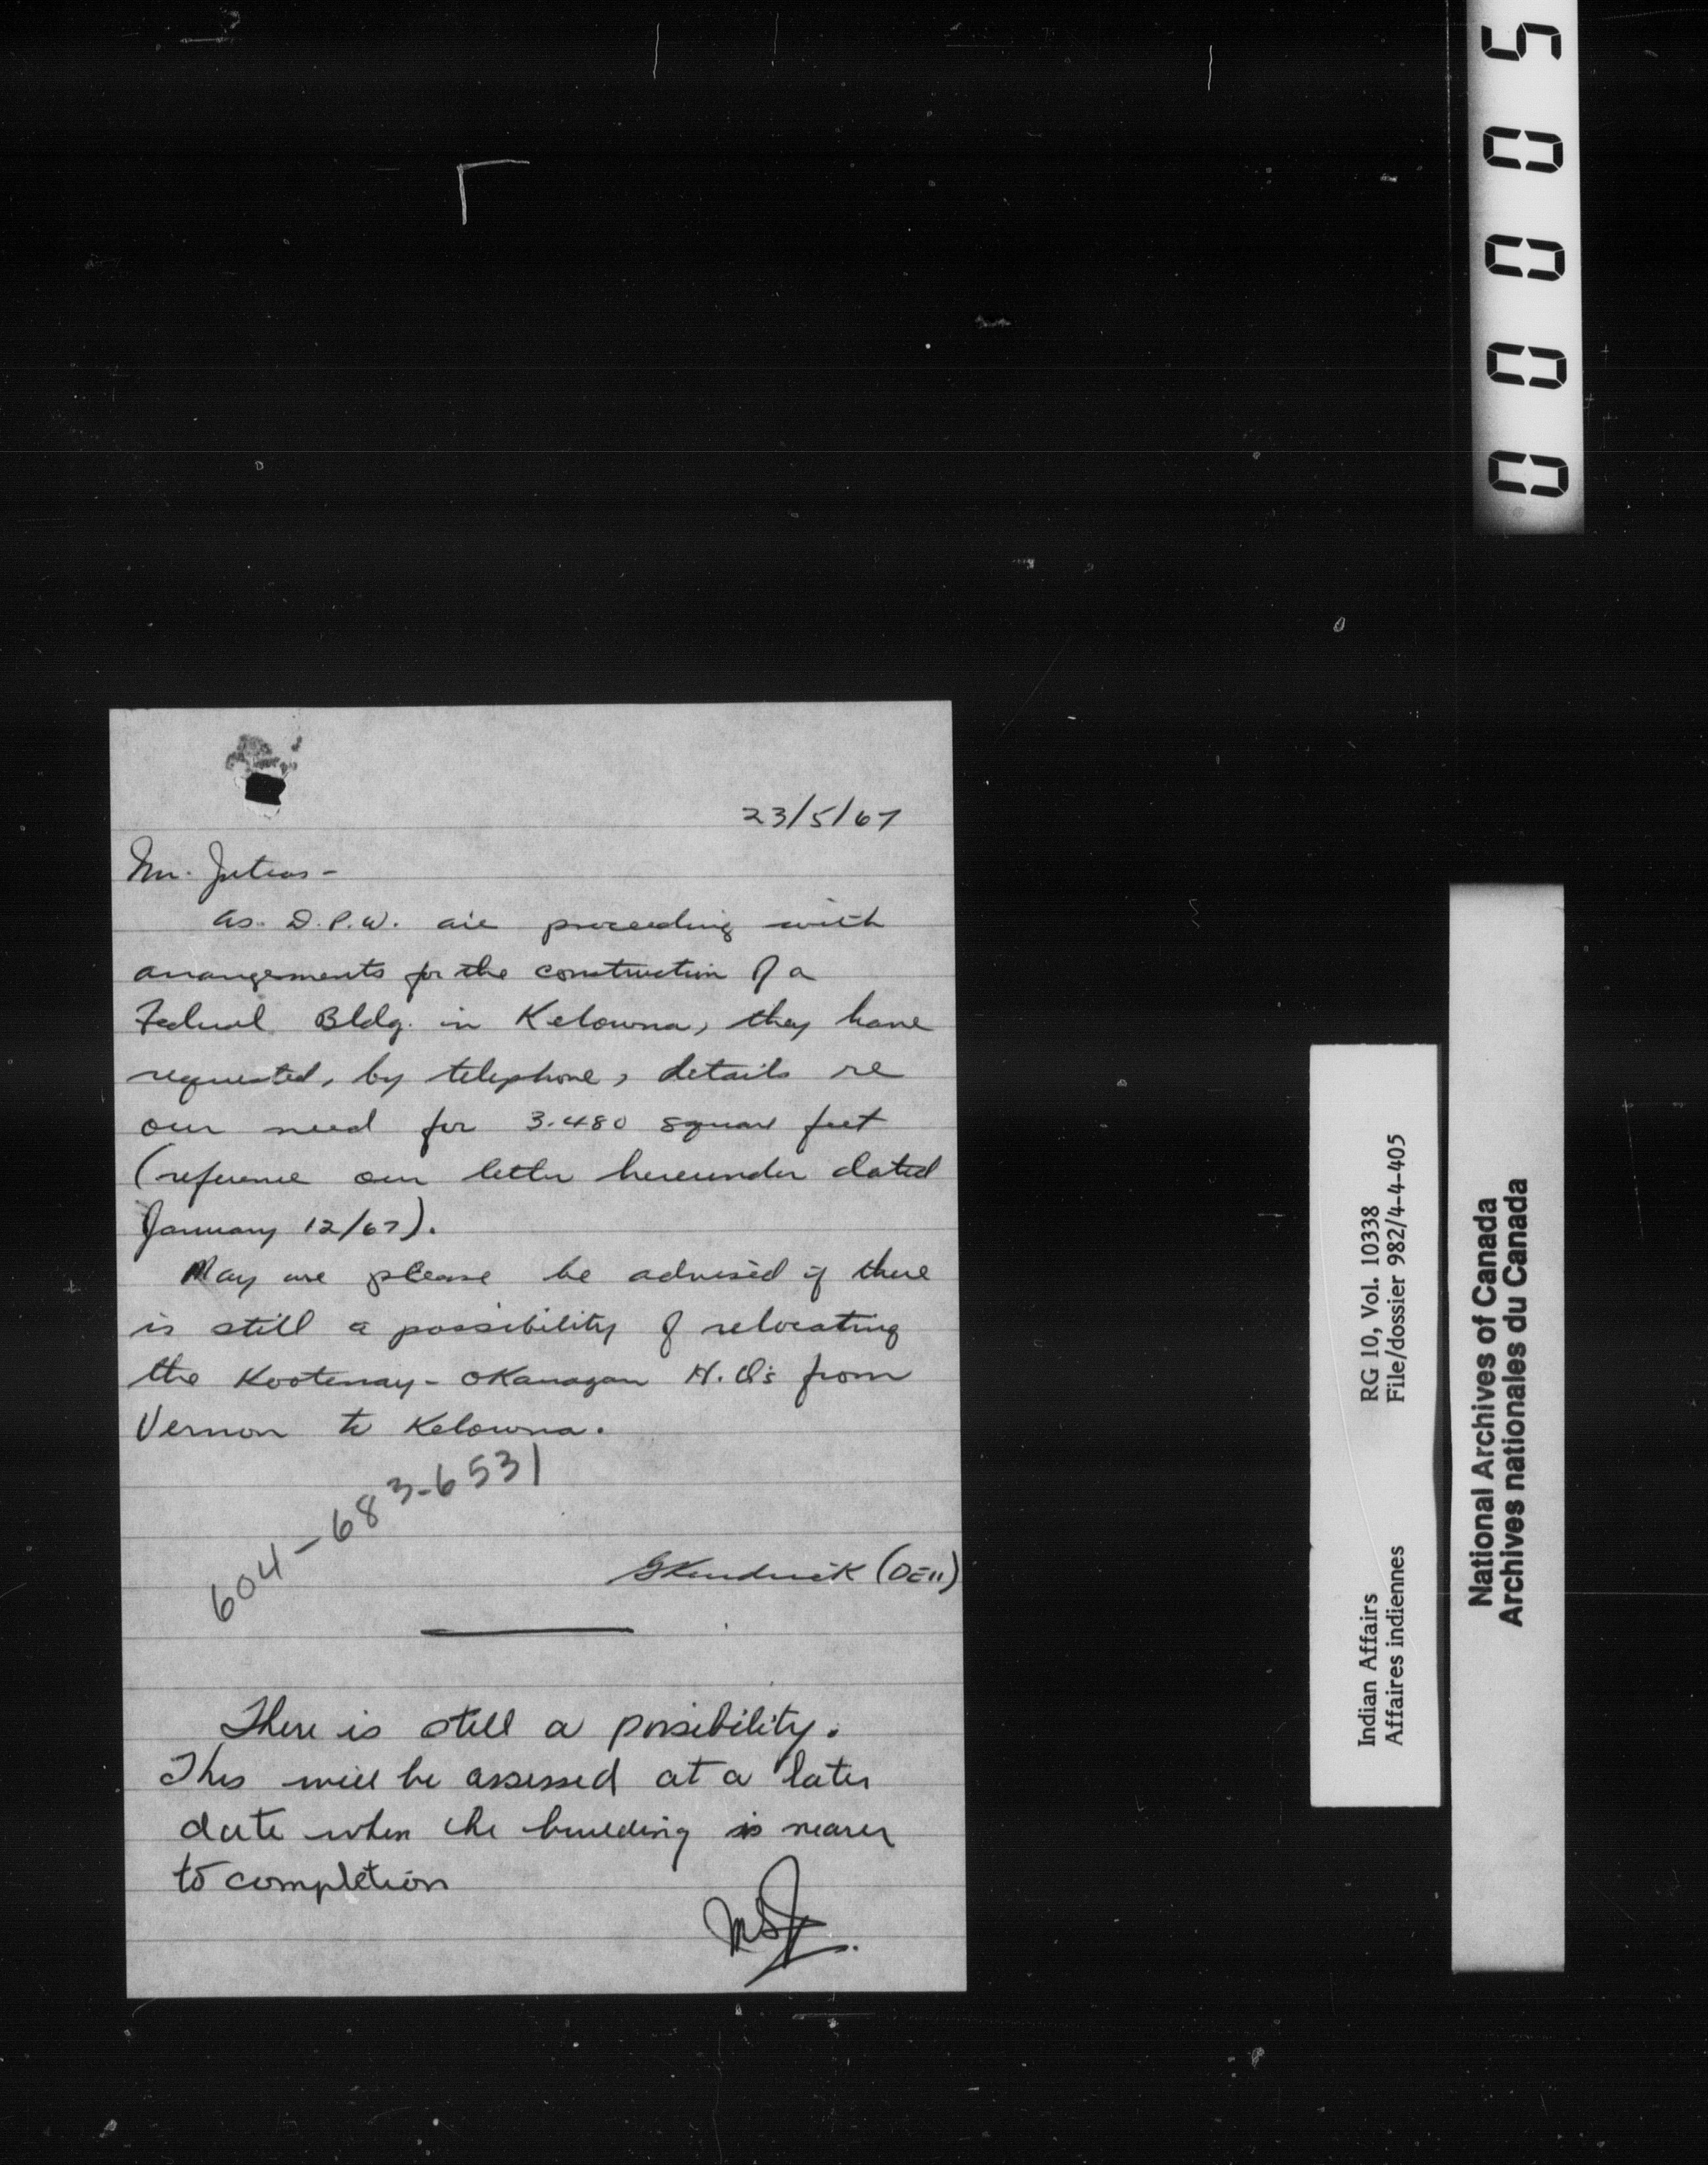 23/5/67
Mr. Jutras -
As D.P.W. are proceeding with
arrangements for the construction of a
Federal Bldg. in Kelowna, they have
requested, by telephone, details re
our need for 3.480 square feet
(reference our letter hereunder dated
January 12/67).
May we please be advised if there
is still a possibility of relocating
the Kootenay - Okanagan H.Q's from
Vernon to Kelowna.
604-683-6531
GKendrick (DE11)
There is still a possibility.
This will be assessed at a later
date when the building is nearer
to completion
00005
Indian Affairs RG 10, Vol. 10338
Affaires indiennes File/dossier 982/4-4-405
National Archives of Canada
Archives nationales du Canada